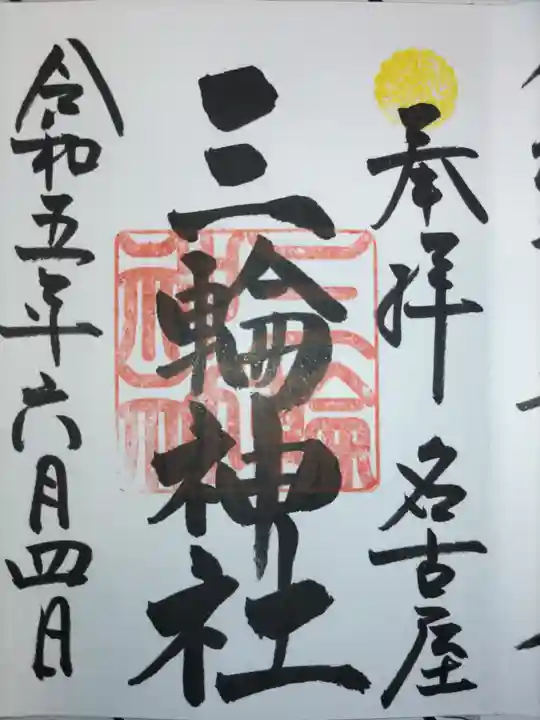 奉拝 名古屋
三輪神社
令和五年六月四日